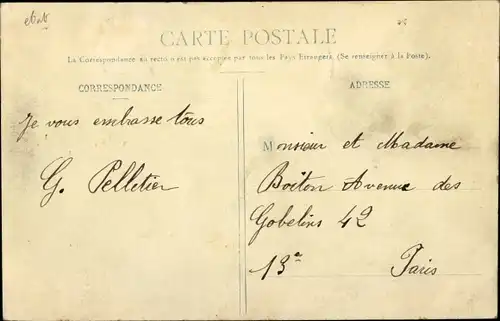 CARTE POSTALE
La Correspondance au recto n'est pas acceptée par tous les Pays Etrangers. (Se renseigner à la Poste).
CORRESPONDANCE
ADRESSE
Je vous embrasse tous
G. Pelletier
Monsieur et Madame
Boiton Avenue des
Gobelins 42
13e Paris